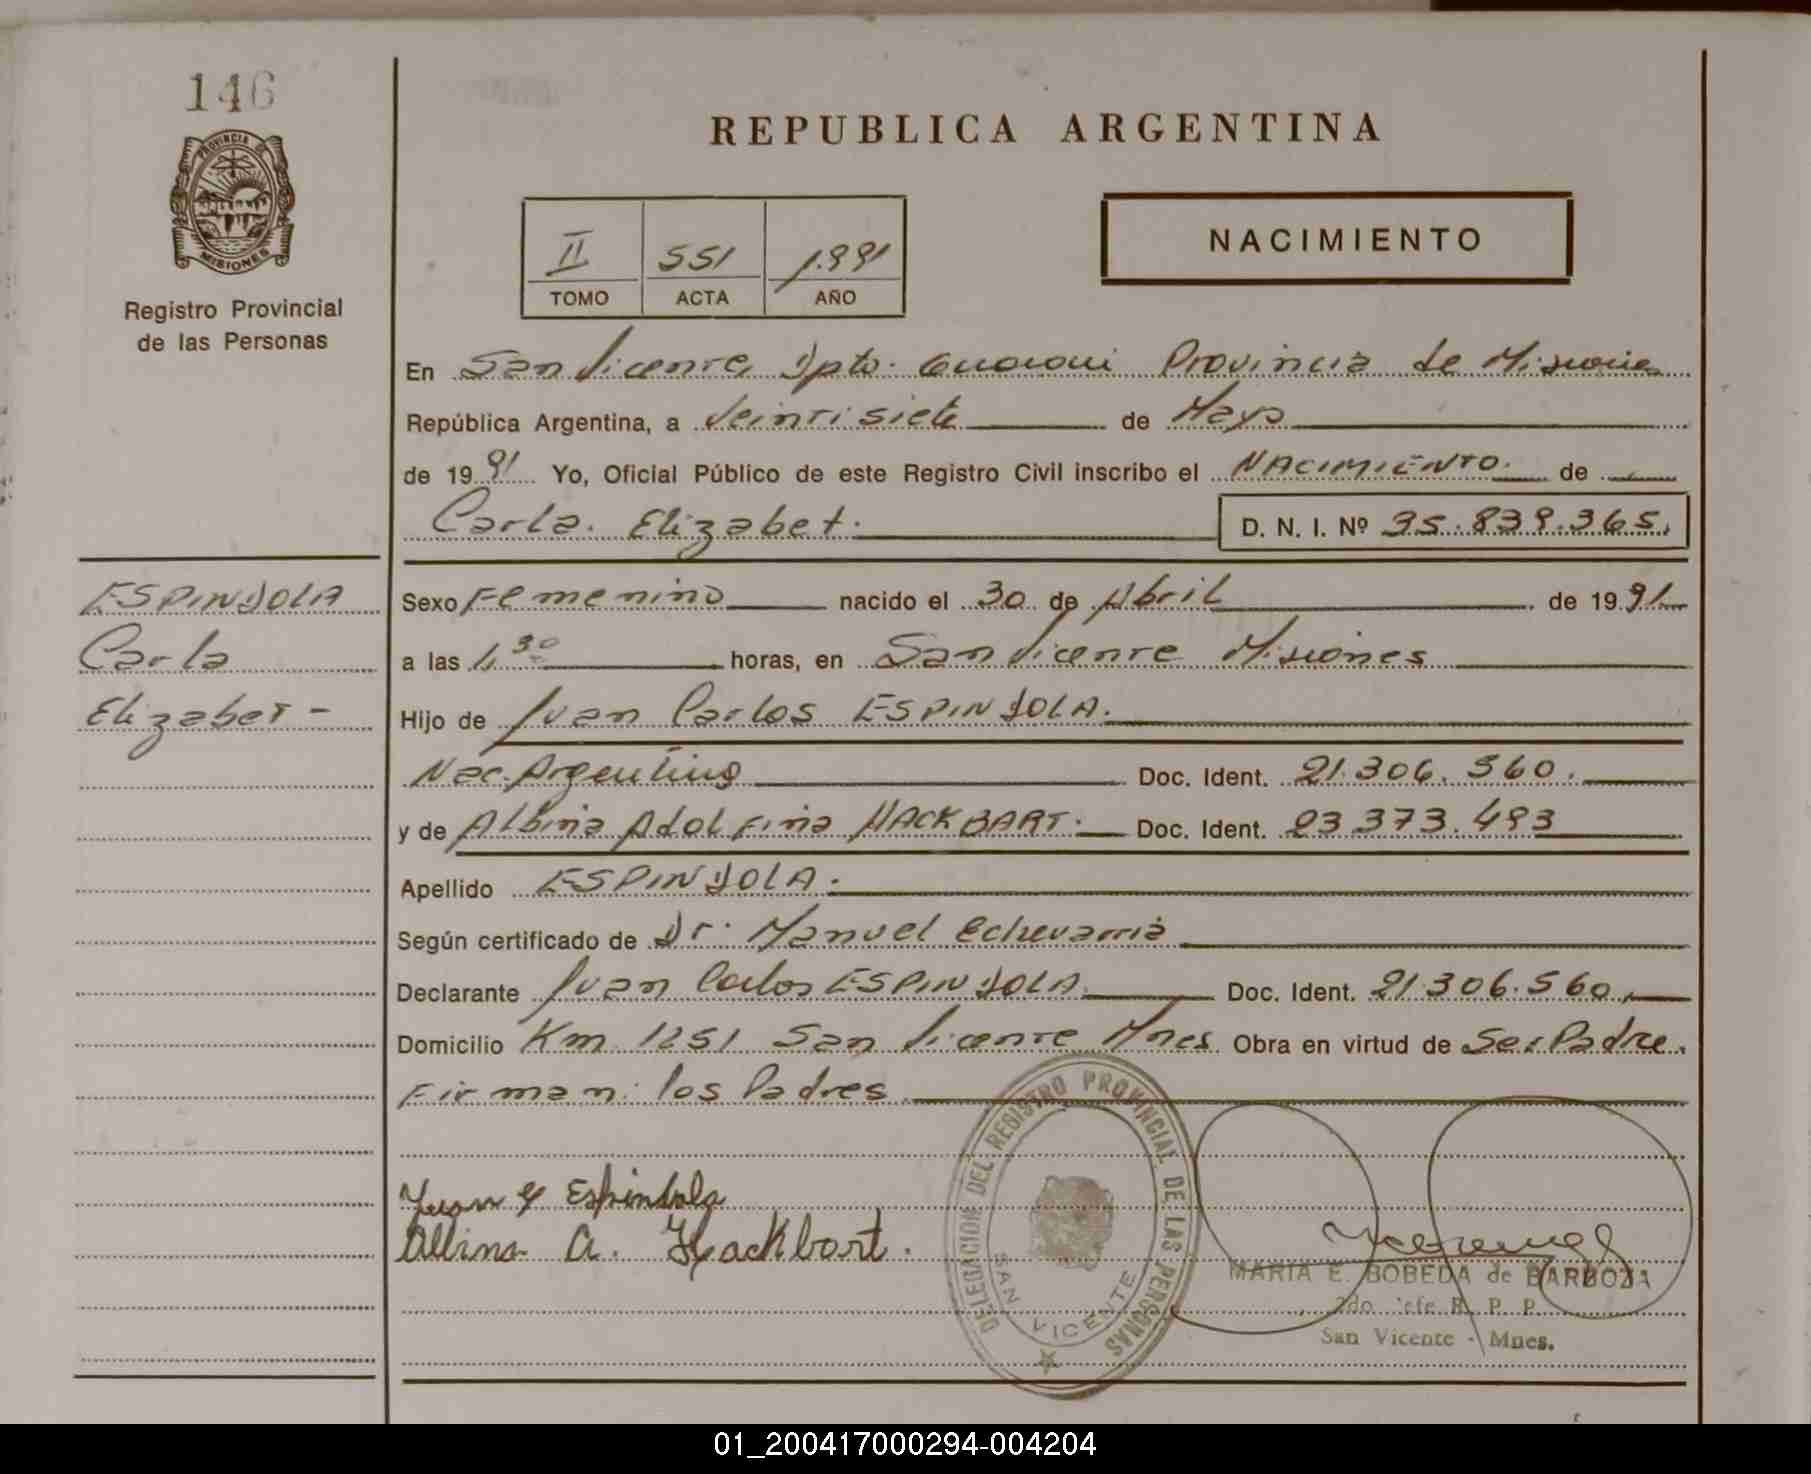 146
PROVINCIA DE
MISIONES
Registro Provincial
de las Personas
REPUBLICA ARGENTINA
II 551 1.991
TOMO ACTA AÑO
NACIMIENTO
En San Vicente, Dpto. Guarani Provincia de Misiones
República Argentina, a Veintisiete de Mayo
de 1991 Yo, Oficial Público de este Registro Civil inscribo el NACIMIENTO. de
Carla. Elizabet. D. N. I. Nº 35.839.365.
ESPINDOLA
Carla
Elizabet -
Sexo Femenino nacido el 30 de Abril de 1991
a las 1,30 horas, en San Vicente Misiones
Hijo de Juan Carlos ESPINDOLA.
Nac. Argentino Doc. Ident. 21.306.560.
y de Albina Adolfina HACKBART. Doc. Ident. 23.373.493
Apellido ESPINDOLA.
Según certificado de Dr. Manuel Echevarria
Declarante Juan Carlos ESPINDOLA. Doc. Ident. 21.306.560,
Domicilio Km. 1251 San Vicente Mnes. Obra en virtud de Ser Padre.
Firman: los Padres
Juan C Espindola
Albina A. Hackbart.
DELEGACION DEL REGISTRO PROVINCIAL DE LAS PERSONAS
SAN VICENTE
MARIA E. BOBEDA de BARBOZA
2do. Jefe R. P. P.
San Vicente - Mnes.
01_200417000294-004204